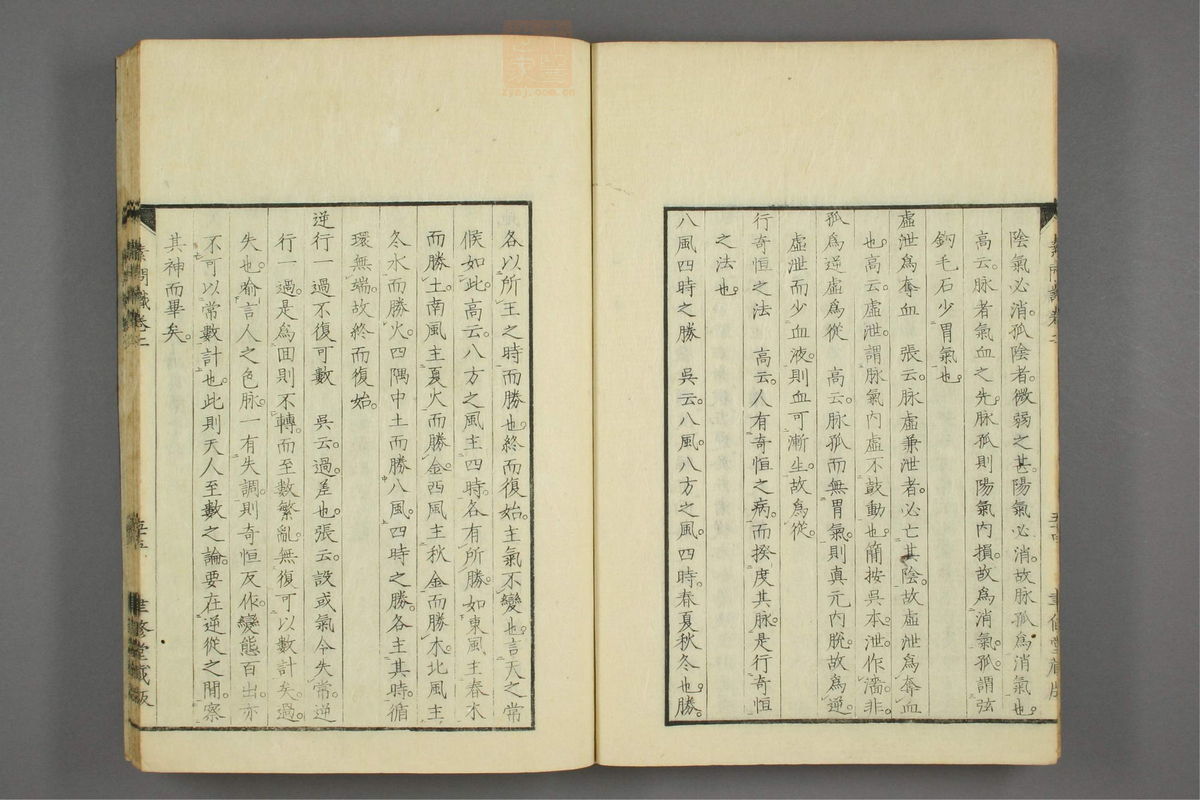 陰氣必消。孤陰者。微弱之甚。陽氣必消。故脉孤爲消氣也。
高云。脉者氣血之先。脉孤則陽氣內損。故爲消氣。孤。謂弦
鈎毛石少胃氣也。
虛泄爲奪血　張云。脉虛兼泄者。必亡其陰。故虛泄爲奪血
也。高云。虛泄。謂脉氣內虛不鼓動也。簡按吳本。泄作濇。非。
孤爲逆虛爲從　高云。脉孤而無胃氣。則真元內脫。故爲逆。
虛泄而少血液。則血可漸生。故爲從。
行奇恒之法　高云。人有奇恒之病。而揆度其脉。是行奇恒
之法也
八風四時之勝　吳云。八風。八方之風。四時。春夏秋冬也。勝。
各以所王之時而勝也。終而復始。主氣不變也。言天之常
候如此。高云。八方之風。主四時。各有所勝。如東風主春木
而勝土。南風主夏火而勝金。西風主秋金而勝木。北風主
冬水而勝火。四隅中土而勝八風。四時之勝。各主其時。循
環無端。故終而復始。
逆行一過不復可數　吳云。過。差也。張云。設或氣令失常。逆
行一過。是爲回則不轉。而至數繁亂。無復可以數計矣。過。
失也。喻言人之色脉。一有失調。則奇恒反作。變態百出。亦
不可以常數計也。此則天人至數之論。要在逆從之間。察
其神而畢矣。
素問識卷二
五十五
聿修堂藏版